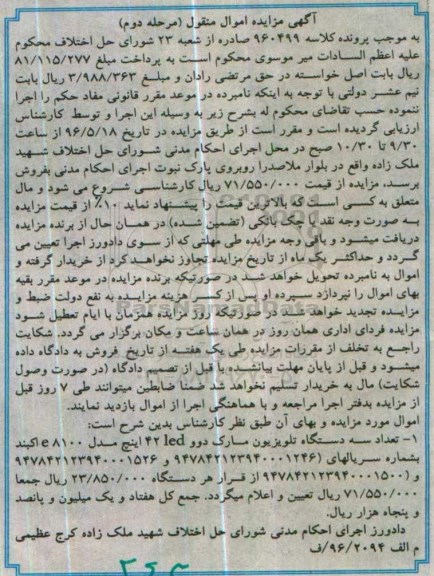 آگهی مزایده اموال منقول (مرحله دوم)
به موجب پرونده کلاسه ۹۶۰۴۹۹ صادره از شعبه ۲۳ شورای حل اختلاف محکوم
علیه اعظم السادات میر موسوی محکوم است به پرداخت مبلغ ۸۱/۱۱۵/۲۷۷
ریال بابت اصل خواسته در حق مرتضی رادان و مبلغ ۳/۹۸۸/۳۶۳ ریال بابت
نیم عشر دولتی با توجه به اینکه نامبرده در موعد مقرر قانونی مفاد حکم را اجرا
ننموده حسب تقاضای محکوم له بشرح زیر به وسیله این اجرا و توسط کارشناس
ارزیابی گردیده است و مقرر است از طریق مزایده در تاریخ ۹۶/۵/۱۸ از ساعت
۹/۳۰ تا ۱۰/۳۰ صبح در محل اجرای احکام مدنی شورای حل اختلاف شهید
ملک زاده واقع در بلوار ملاصدرا روبروی پارک نبوت اجرای احکام مدنی بفروش
برسد، مزایده از قیمت ۷۱/۵۵۰/۰۰۰ ریال کارشناسی شروع می شود و مال
متعلق به کسی است که بالاترین قیمت را پیشنهاد نماید ۱۰٪ از قیمت مزایده
به صورت وجه نقد یا چک بانکی (تضمین شده) در همان حال از برنده مزایده
دریافت میشود و باقی وجه مزایده طی مهلتی که از سوی دادورز اجرا تعیین می
گردد و حداکثر یک ماه از تاریخ مزایده تجاوز نخواهد کرد از خریدار گرفته و
اموال به نامبرده تحویل خواهد شد در صورتیکه برنده مزایده در موعد مقرر بقیه
بهای اموال را نپردازد سپرده او پس از کسر هزینه مزایده به نفع دولت ضبط و
مزایده تجدید خواهد شد. در صورتیکه روز مزایده همزمان با ایام تعطیل شود
مزایده فردای اداری همان روز در همان ساعت و مکان برگزار می گردد. شکایت
راجع به تخلف از مقررات مزایده طی یک هفته از تاریخ فروش به دادگاه داده
میشود و قبل از پایان مهلت بیانشده یا قبل از تصمیم دادگاه (در صورت وصول
شکایت) مال به خریدار تسلیم نخواهد شد ضمنا ضابطین میتوانند طی ۷ روز قبل
از مزایده بدفتر اجرا مراجعه و با هماهنگی اجرا از اموال بازدید نمایند.
اموال مورد مزایده و بهای آن طبق نظر کارشناس بدین شرح است:
۱- تعداد سه دستگاه تلویزیون مارک دوو ۴۲ led اینچ مدل e ۸۱۰۰ اکبند
بشماره سریالهای (۹۴۷۸۴۲۱۲۳۹۴۰۰۰۱۲۴۶ و ۹۴۷۸۴۲۱۲۳۹۴۰۰۰۱۵۲۶
و ۹۴۷۸۴۲۱۲۳۹۴۰۰۰۱۵۰۰) از قرار هر دستگاه ۲۳/۸۵۰/۰۰۰ ریال جمعا
۷۱/۵۵۰/۰۰۰ ریال تعیین و اعلام میگردد. جمع کل هفتاد و یک میلیون و پانصد
و پنجاه هزار ریال.
دادورز اجرای احکام مدنی شورای حل اختلاف شهید ملک زاده کرج عظیمی
م الف ۹۶/۲۰۹۴/ف